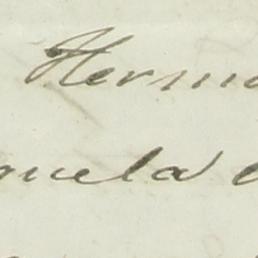 Herma
uela